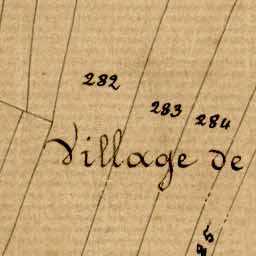 282
283
284
Village de